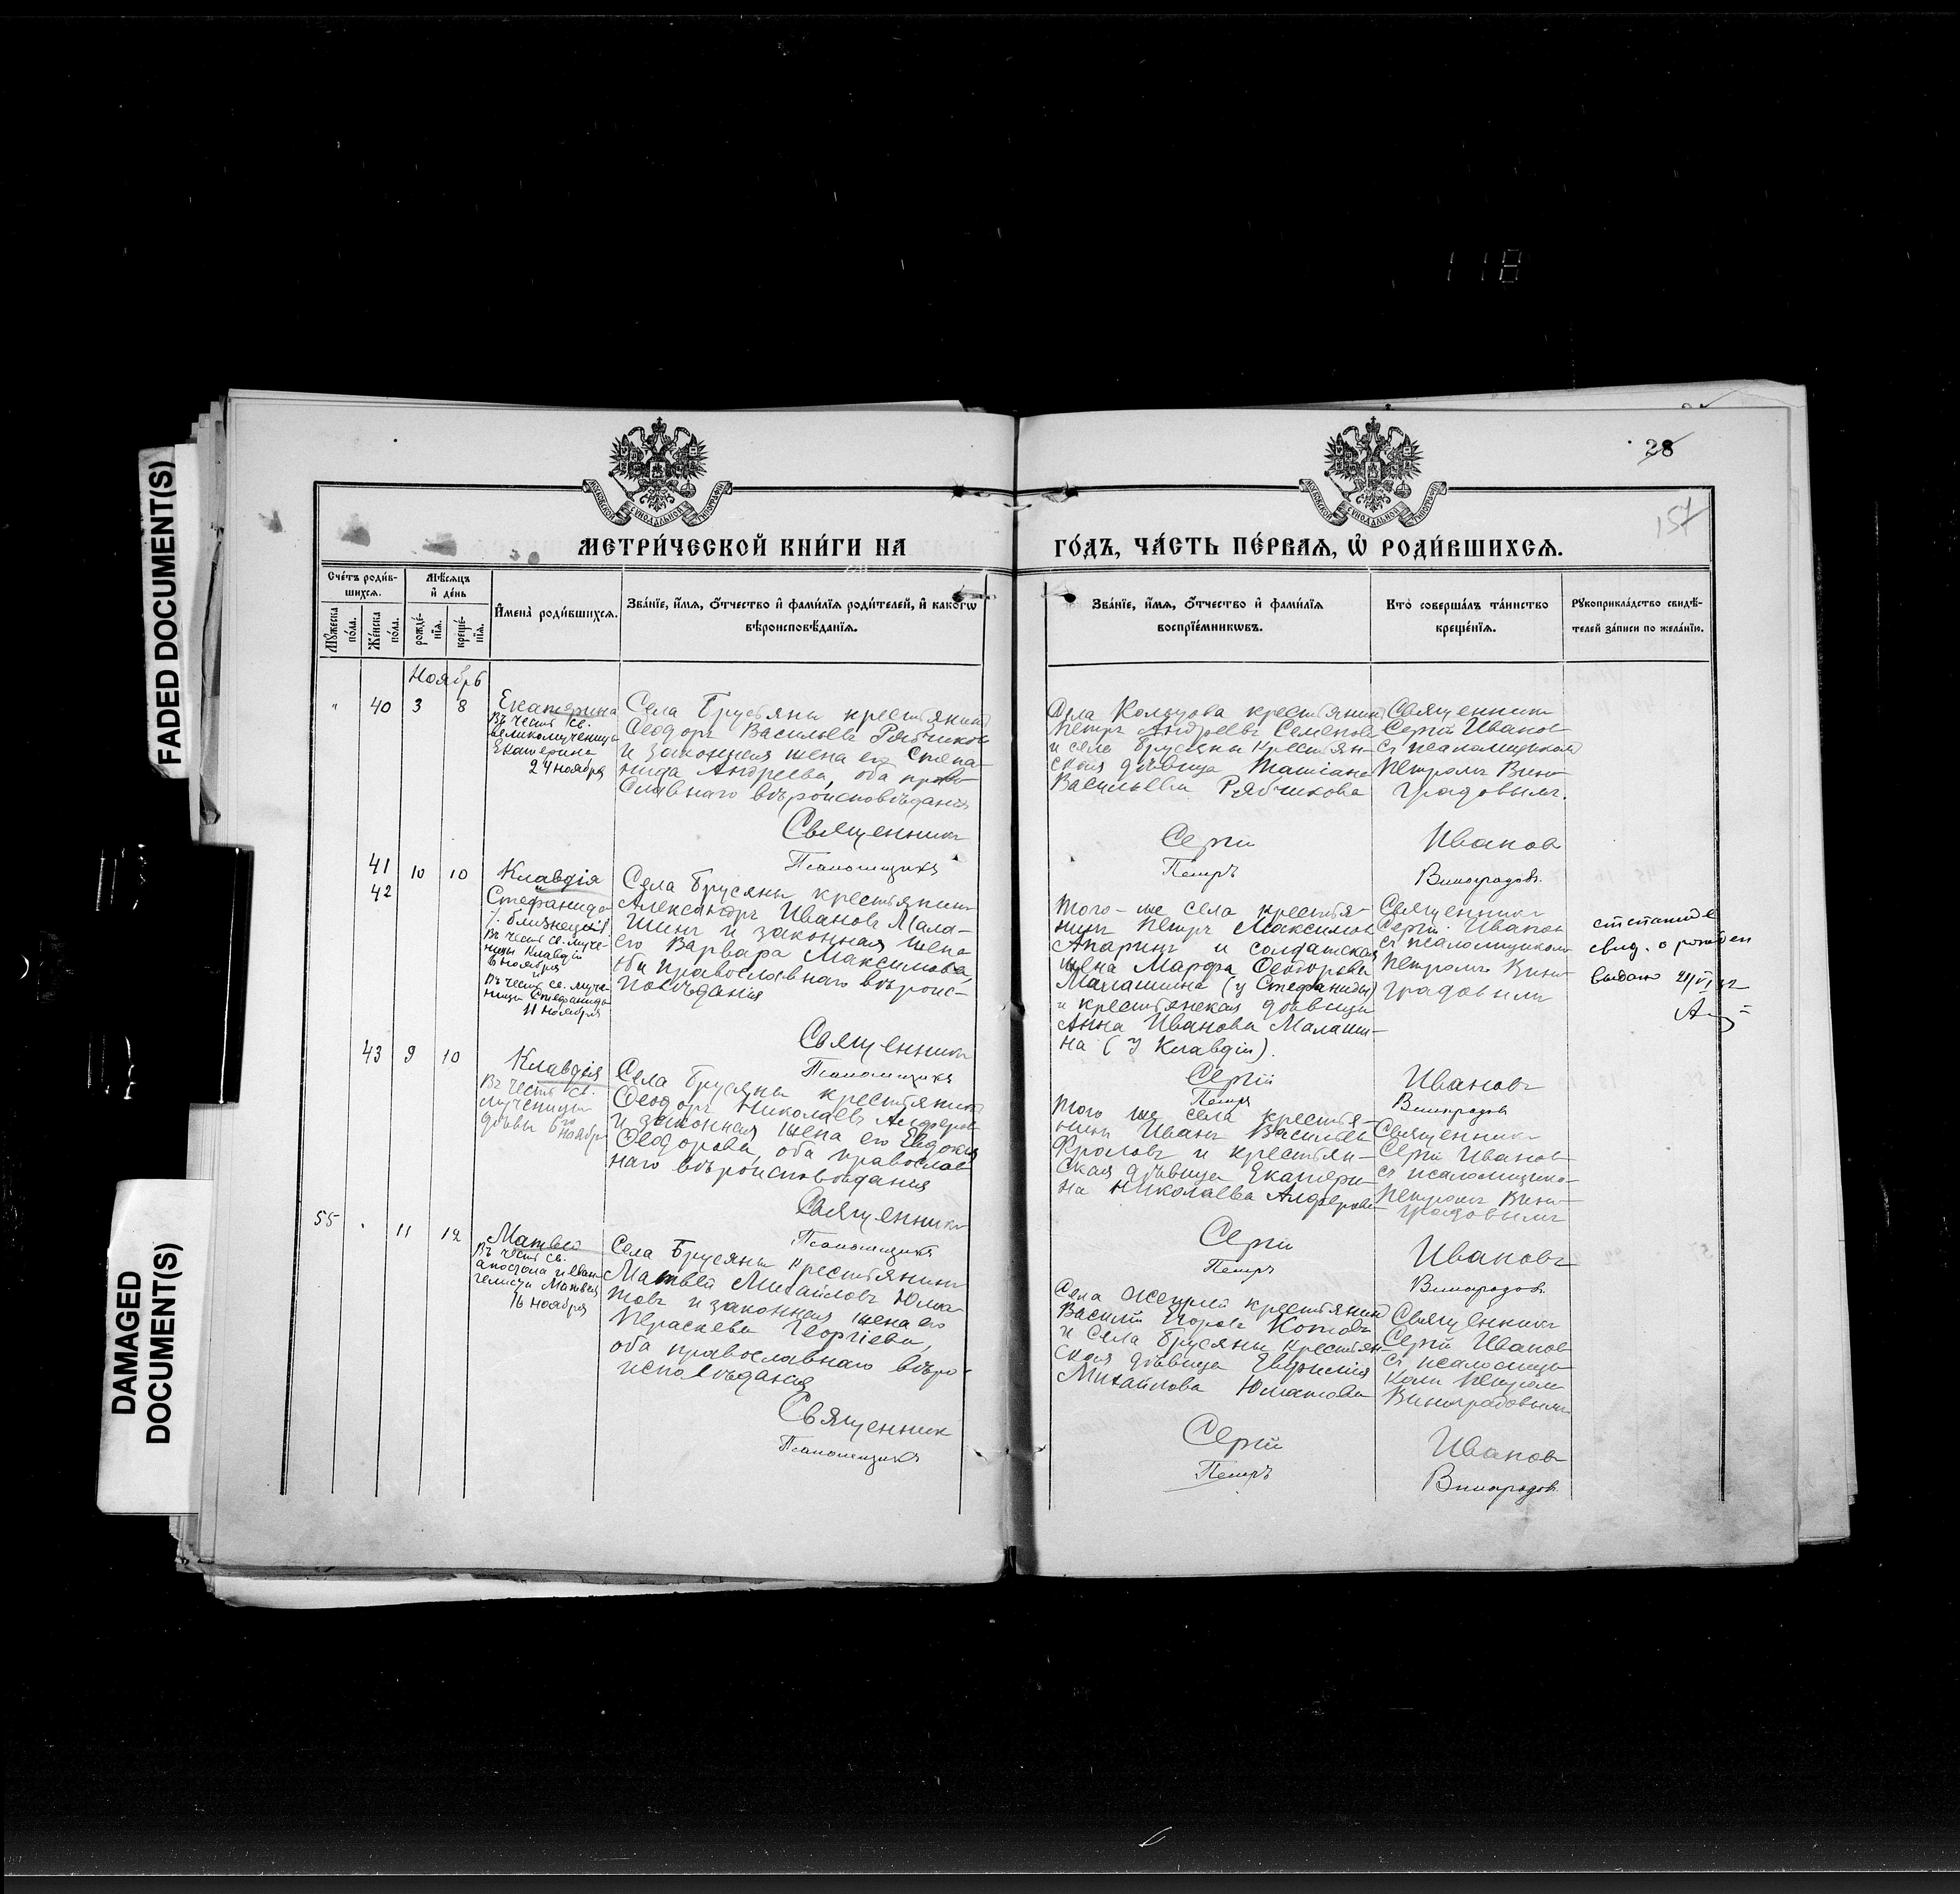 118
FADED DOCUMENT(S)
DAMAGED
DOCUMENT(S)
28
157
МОСКОВСКОЙ СѴНОДАЛЬНОЙ ТИПОГРАФІИ
МОСКОВСКОЙ СѴНОДАЛЬНОЙ ТИПОГРАФІИ
МЕТРИ́ЧЕСКОЙ КНИ́ГИ НА
ГО́ДЪ, ЧА́СТЬ ПЕ́РВАЯ, Ѡ РОДИ́ВШИХСЯ.
Сче́тъ роди́в-
шихся.
Мѣ́сяцъ
и де́нь
Мꙋ́жеска
по́ла.
Же́нска
по́ла.
рожде́-
нїя.
креще́-
нїя.
И҆мена̀ роди́вшихся.
Зва́нїе, и҆́мя, Ѻ҆́тчество и҆ фами́лїя роди́телей, и҆ како́гѡ
вѣроисповѣ́данїя.
Зва́нїе, и҆́мя, Ѻ҆́тчество и҆ фами́лїя
воспрїе́мникѡвъ.
Кто̀ соверша́лъ та́инство
креще́нїя.
Рꙋкоприкла́дство свидѣ́-
телей за́писи по жела́нїю.
Ноябрь
" 40 3 8
Екатерина
Въ честь св.
великомученицы
Екатерины
24 ноября
Села Брусяны крестьянинъ
Ѳеодоръ Васильевъ Рябчиковъ
и законная жена его Степа-
нида Андреева, оба право-
славнаго вѣроисповѣданія
Священникъ
Псаломщикъ
Села Кольцова крестьянинъ
Петръ Андреевъ Семеновъ
и села Брусяны крестьян-
ская дѣвица Татіана
Васильева Рябчикова
Сергій
Петръ
Священникъ
Сергій Ивановъ
съ псаломщикомъ
Петромъ Вино-
градовымъ.
Ивановъ
Виноградовъ.
41 10 10
42
Клавдія
и
Стефанида
/: близнецы :/
Въ честь св. муче-
ницы Клавдіи
6 ноября
и
Въ честь св. муче-
ницы Стефаниды
11 ноября
Села Брусяны крестьянинъ
Александръ Ивановъ Мала-
шинъ и законная жена
его Варвара Максимова,
оба православнаго вѣроис-
повѣданія
Священникъ
Псаломщикъ
Того-же села крестья-
нинъ Петръ Максимовъ
Апаринъ и солдатская
жена Марѳа Ѳеодорова
Малашина (у Стефаниды)
и крестьянская дѣвица
Анна Иванова Малаши-
на (у Клавдіи).
Сергій
Петръ
Священникъ
Сергій Ивановъ
съ псаломщикомъ
Петромъ Вино-
градовымъ
Ивановъ
Виноградовъ
свид. о рожден
выдано
43 9 10
Клавдія
Въ честь св.
мученицы
дѣвы 6го
ноября
Села Брусяны крестьянинъ
Ѳеодоръ Николаевъ Алферовъ
и законная жена его Евдокія
Ѳеодорова, оба православ-
наго вѣроисповѣданія
Священникъ
Псаломщикъ
Того же села крестья-
нинъ Иванъ Васильевъ
Фроловъ и крестьян-
ская дѣвица Екатери-
на Николаева Алферова
Сергій
Петръ
Священникъ
Сергій Ивановъ
съ псаломщико-
Петромъ Вино-
градовымъ
Ивановъ
Виноградовъ.
55 " 11 12
Матвей
Въ честь св.
апостола и еван-
гелиста Матвея
16 ноября
Села Брусяны крестьянинъ
Матвей Михайловъ Юма-
товъ и законная жена его
Параскева Георгіева,
оба православнаго вѣро-
исповѣданія
Священникъ
Псаломщикъ
Села крестьянинъ
Василій Егоровъ Котовъ
и села Брусяны крестьян-
ская дѣвица Евфимія
Михайлова Юматова
Сергій
Петръ
Священникъ
Сергій Ивановъ
съ псаломщи-
комъ Петромъ
Виноградовымъ
Ивановъ
Виноградовъ.